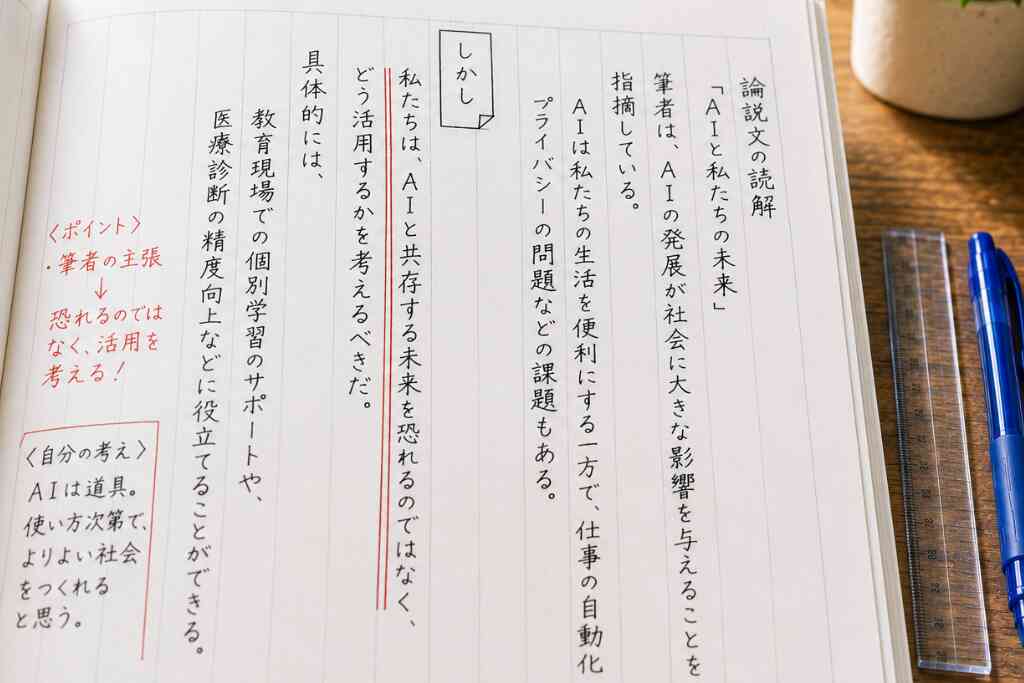 論説文の読解
「AIと私たちの未来」
筆者は、AIの発展が社会に大きな影響を与えることを
指摘している。
AIは私たちの生活を便利にする一方で、仕事の自動化
プライバシーの問題などの課題もある。
しかし
私たちは、AIと共存する未来を恐れるのではなく、
どう活用するかを考えるべきだ。
具体的には、
教育現場での個別学習のサポートや、
医療診断の精度向上などに役立てることができる。
〈ポイント〉
・筆者の主張
↓
恐れるのでは
なく、活用を
考える！
〈自分の考え〉
AIは道具。
使い方次第で、
よりよい社会
をつくれる
と思う。